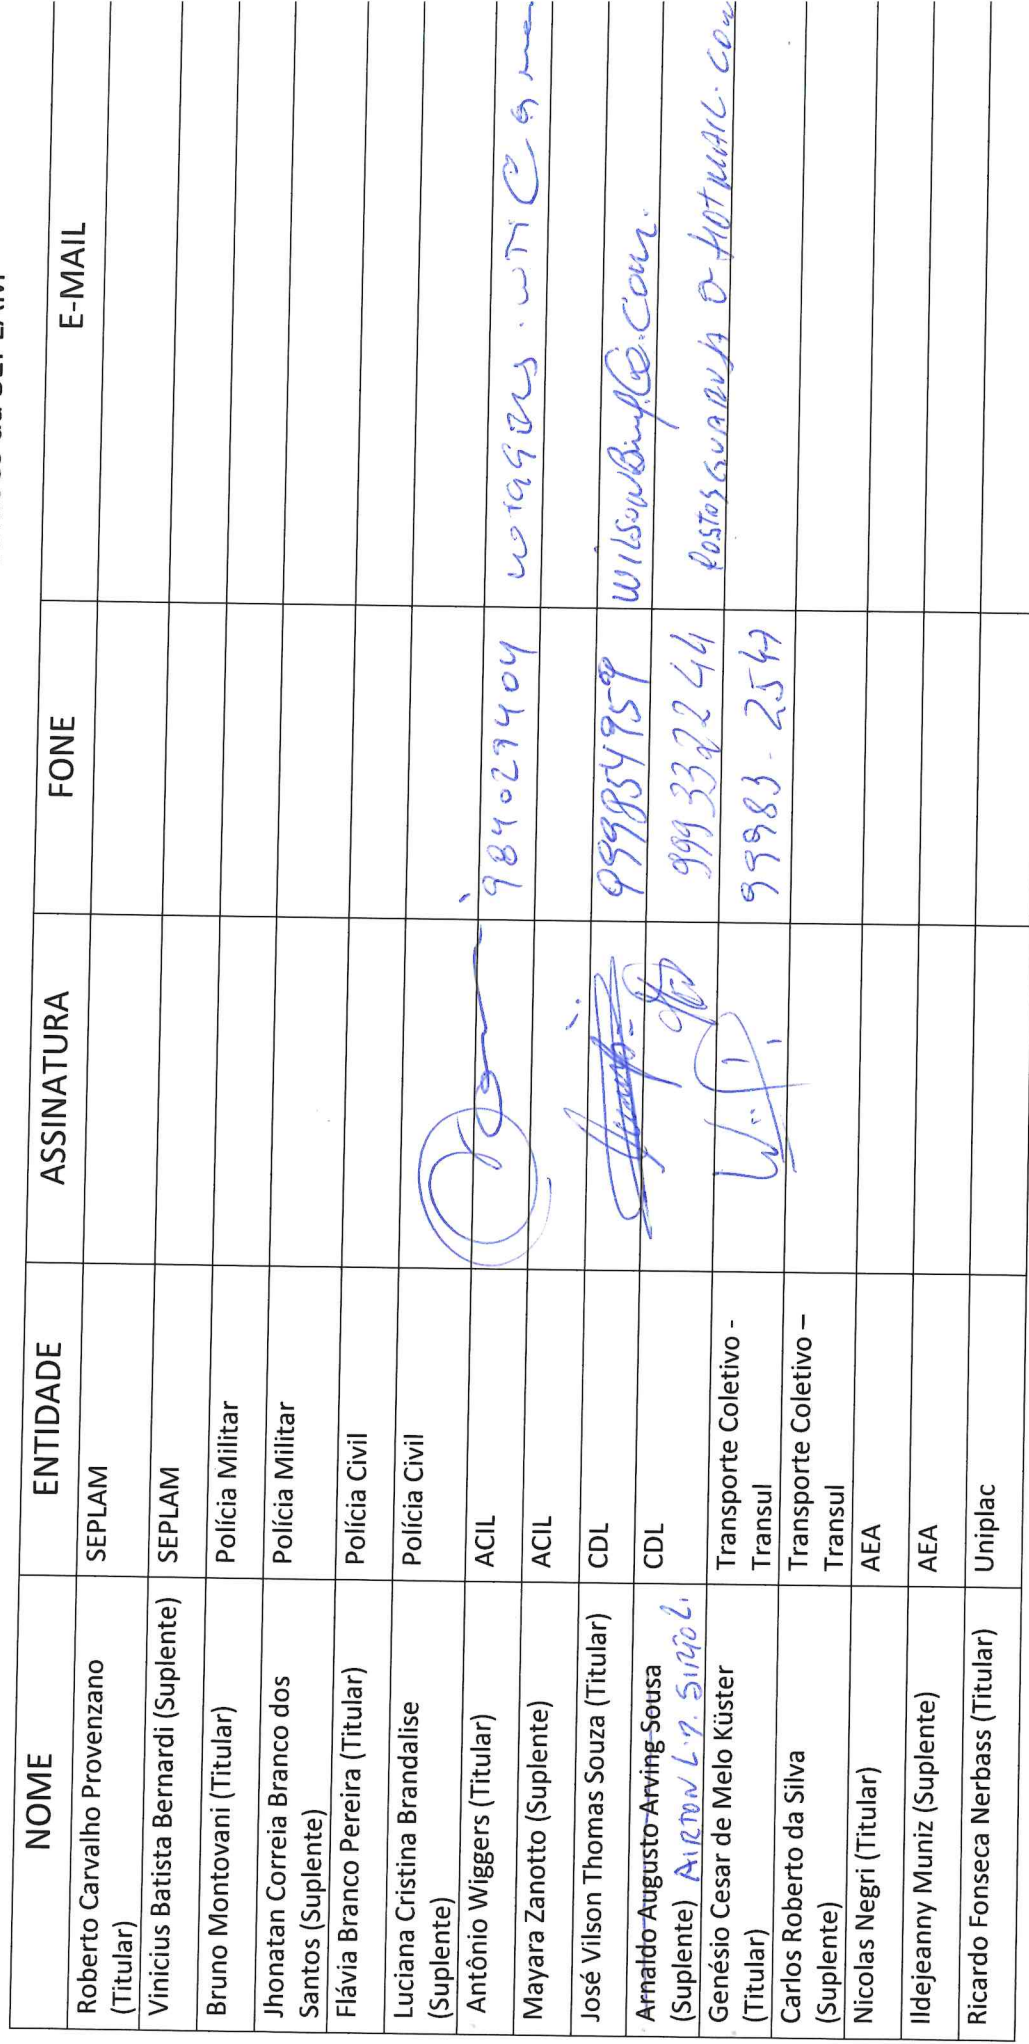 NOME ENTIDADE ASSINATURA FONE E-MAIL
Roberto Carvalho Provenzano SEPLAM
(Titular)
Vinicius Batista Bernardi (Suplente) SEPLAM
Bruno Montovani (Titular) Polícia Militar
Jhonatan Correia Branco dos Polícia Militar
Santos (Suplente)
Flávia Branco Pereira (Titular) Polícia Civil
Luciana Cristina Brandalise Polícia Civil
(Suplente)
Antônio Wiggers (Titular) ACIL 984029404
Mayara Zanotto (Suplente) ACIL
José Vilson Thomas Souza (Titular) CDL 999854959
Arnaldo Augusto Arving Sousa CDL
(Suplente) AIRTON L. 999332244 POSTOSGUARUJA @ HOTMAIL.COM
Genésio Cesar de Melo Küster Transporte Coletivo - 99983-2547
(Titular) Transul
Carlos Roberto da Silva Transporte Coletivo –
(Suplente) Transul
Nicolas Negri (Titular) AEA
Ildejeanny Muniz (Suplente) AEA
Ricardo Fonseca Nerbass (Titular) Uniplac